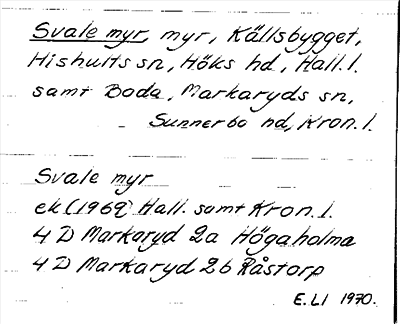 Svale myr, myr, Källsbygget,
Hishults sn, Höks hd, Hall. l.
samt Boda, Markaryds sn,
Sunnerbo hd, Kron. l.
Svale myr
ek (1969) Hall. samt Kron. l.
4 D Markaryd 2a Högaholma
4 D Markaryd 2b Råstorp
E. LI 1970.